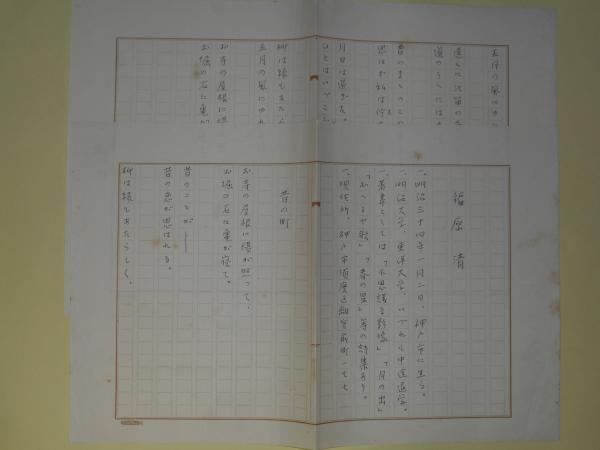 福原清
一、明治三十四年一月二日、神戸市に生る。
一、明治大学、東洋大学、いづれも中途退学。
一、著書としては「不思議な影像」「月の出」
「ボヘミヤ歌」「春の星」等の詩集あり。
一、現住所、神戸市須磨区離宮前町一ノ七七
昔の町
お寺の屋根に陽が照って、
お堀の石に亀が寝て。
昔のことが――
昔の恋が思はれる。
柳は緑もあたらしく、
五月の風にゆれ
遠くに汽笛の
道のうへには
昔のまゝのこの
思はず私は佇
月日は過ぎた。
ひとはいづこ
柳は緑もあたら
五月の風にゆれ
お寺の屋根に陽
お堀の石に亀が